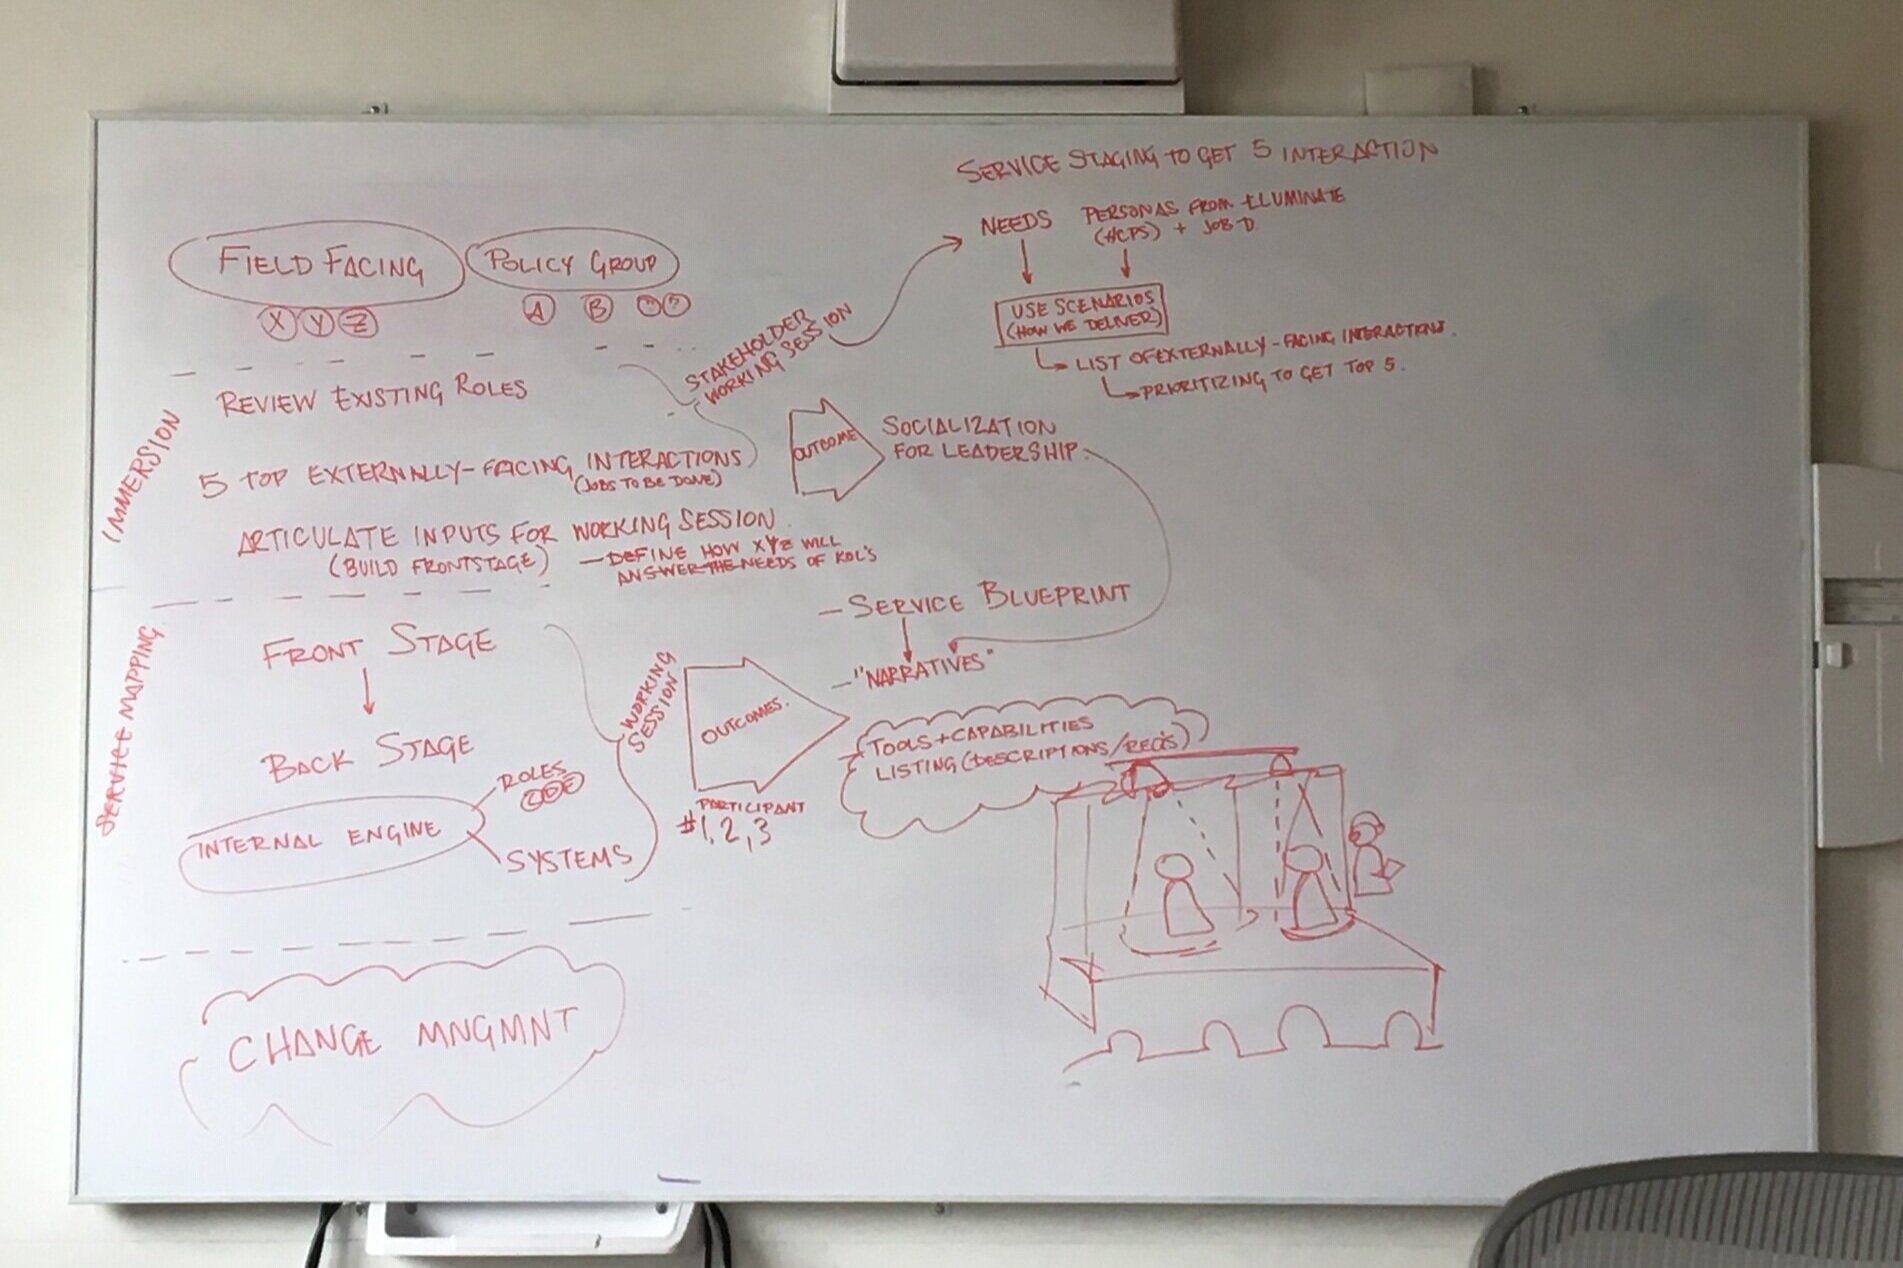 SERVICE STAGING TO GET 5 INTERACTION
NEEDS
PERSONAS FROM ILLUMINATE
(HCPS) + JOB D
USE SCENARIOS
(HOW WE DELIVER)
LIST OF EXTERNALLY-FACING INTERACTIONS.
PRIORITIZING TO GET TOP 5.
FIELD FACING
POLICY GROUP
X Y Z
A B
STAKEHOLDER
WORKING SESSION
IMMERSION
REVIEW EXISTING ROLES
5 TOP EXTERNALLY-FACING INTERACTIONS
(JOBS TO BE DONE)
ARTICULATE INPUTS FOR WORKING SESSION.
(BUILD FRONTSTAGE)
- DEFINE HOW XYZ WILL
ANSWER THE NEEDS OF KOL'S
OUTCOME
SOCIALIZATION
FOR LEADERSHIP.
SERVICE MAPPING
FRONT STAGE
BACK STAGE
INTERNAL ENGINE
ROLES
SYSTEMS
WORKING
SESSION
OUTCOMES.
PARTICIPANT
#1, 2, 3
- SERVICE BLUEPRINT
- "NARRATIVES"
- TOOLS + CAPABILITIES
LISTING (DESCRIPTIONS/REQ'S)
CHANGE MNGMNT